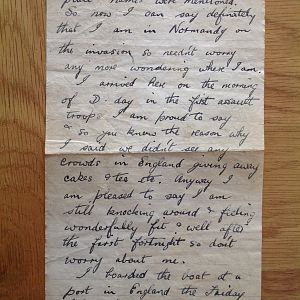 place names were mentioned.
So now I can say definately
that I am in Normandy on
the invasion so needn't worry
any more wondering where I am.
I arrived here on the morning
of D. day in the first assault
troops I am proud to say
& so you know the reason why
I said we didn't see any
crowds in England giving away
cakes & tea etc. Anyway I
am pleased to say I am
still knocking around & feeling
wonderfully fit & well after
the first fortnight so dont
worry about me.
I boarded the boat at a
port in England the Friday